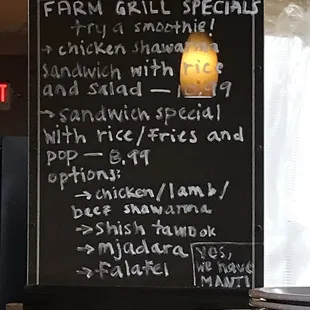 FARM GRILL SPECIALS
try a smoothie!
→ chicken shawarma
sandwich with rice
and salad — 10.99
→ sandwich special
with rice/fries and
pop — 8.99
options:
→ chicken/lamb/
beef shawarma
→ shish tawook
→ mjadara
→ falafel
Yes,
we have
MANTI